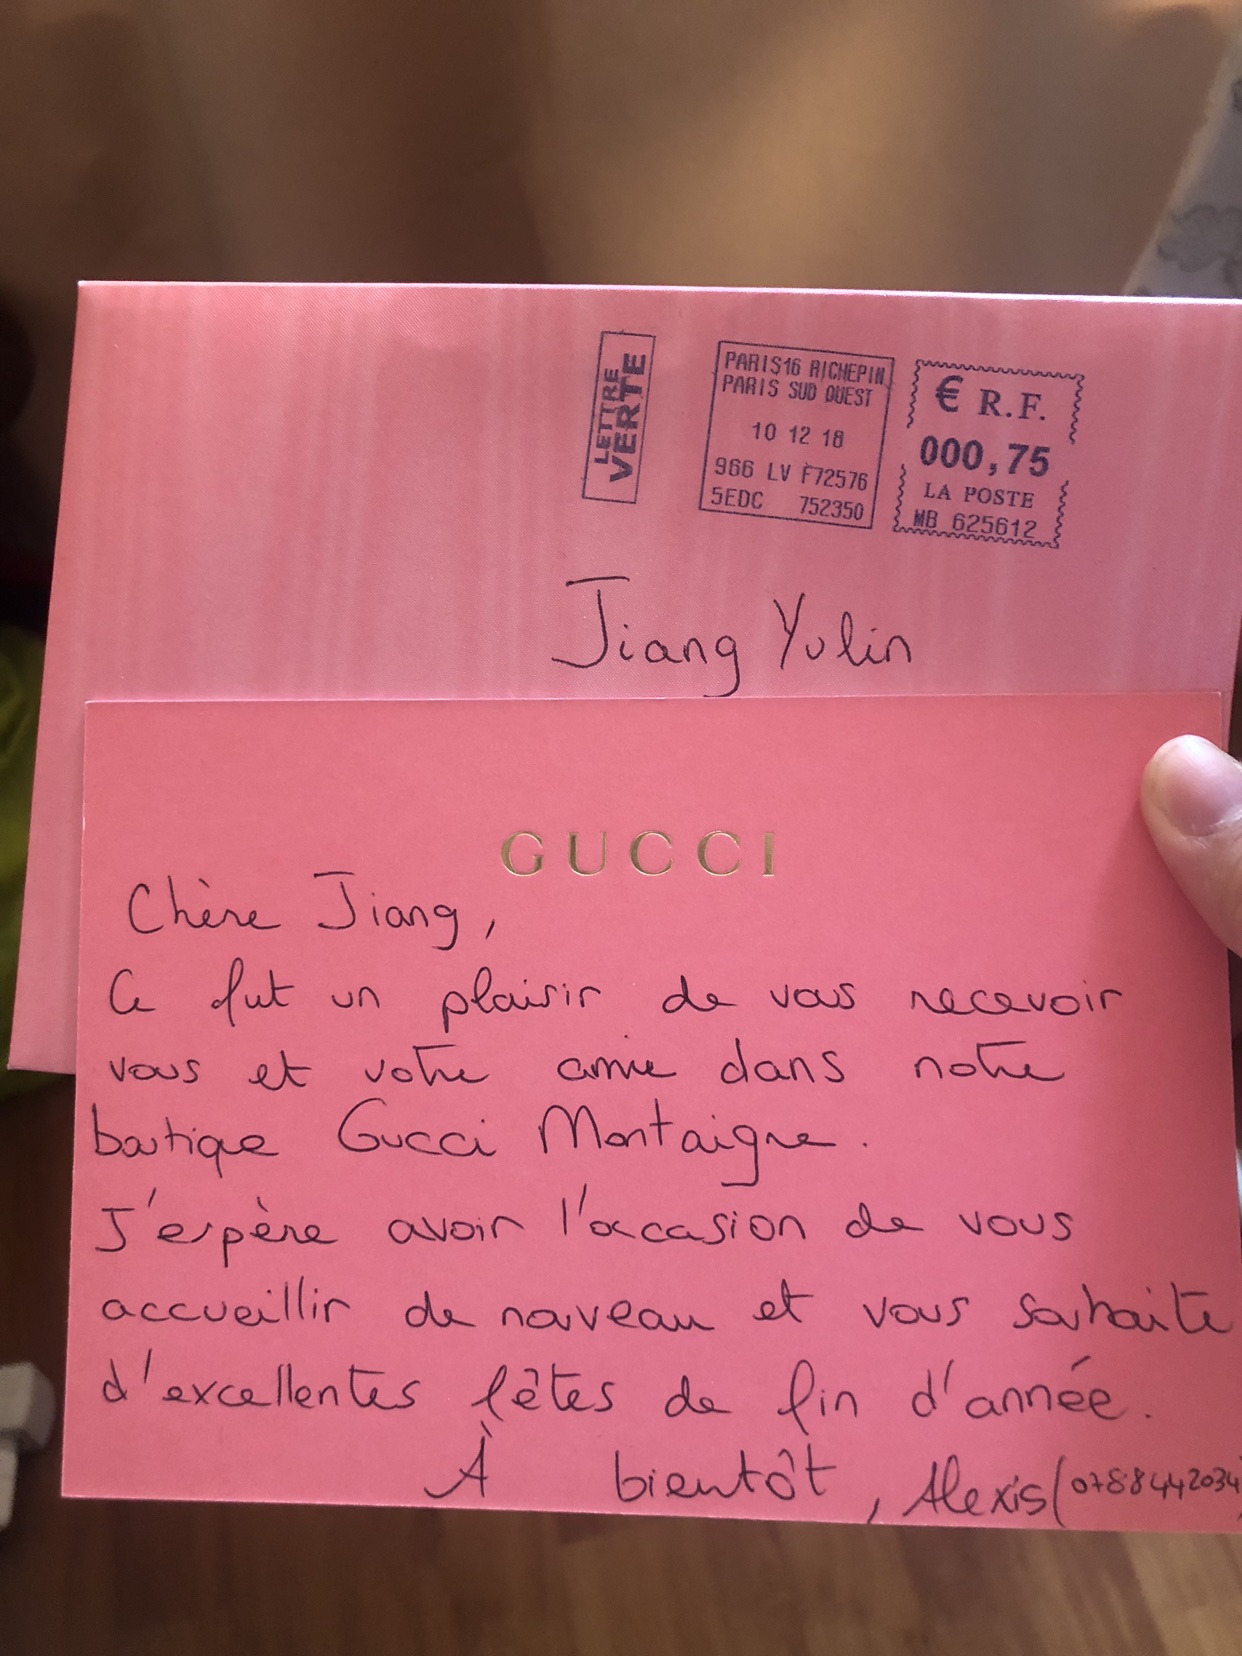 LETTRE
VERTE
PARIS16 RICHEPIN
PARIS SUD OUEST
10 12 18
966 LV F72576
5EDC 752350
€ R.F.
000,75
LA POSTE
MB 625612
Jiang Yulin
GUCCI
Chère Jiang,
Ce fut un plaisir de vous recevoir
vous et votre amie dans notre
boutique Gucci Montaigne.
J'espère avoir l'occasion de vous
accueillir de nouveau et vous souhaite
d'excellentes fêtes de fin d'année.
À bientôt, Alexis (0788442034)